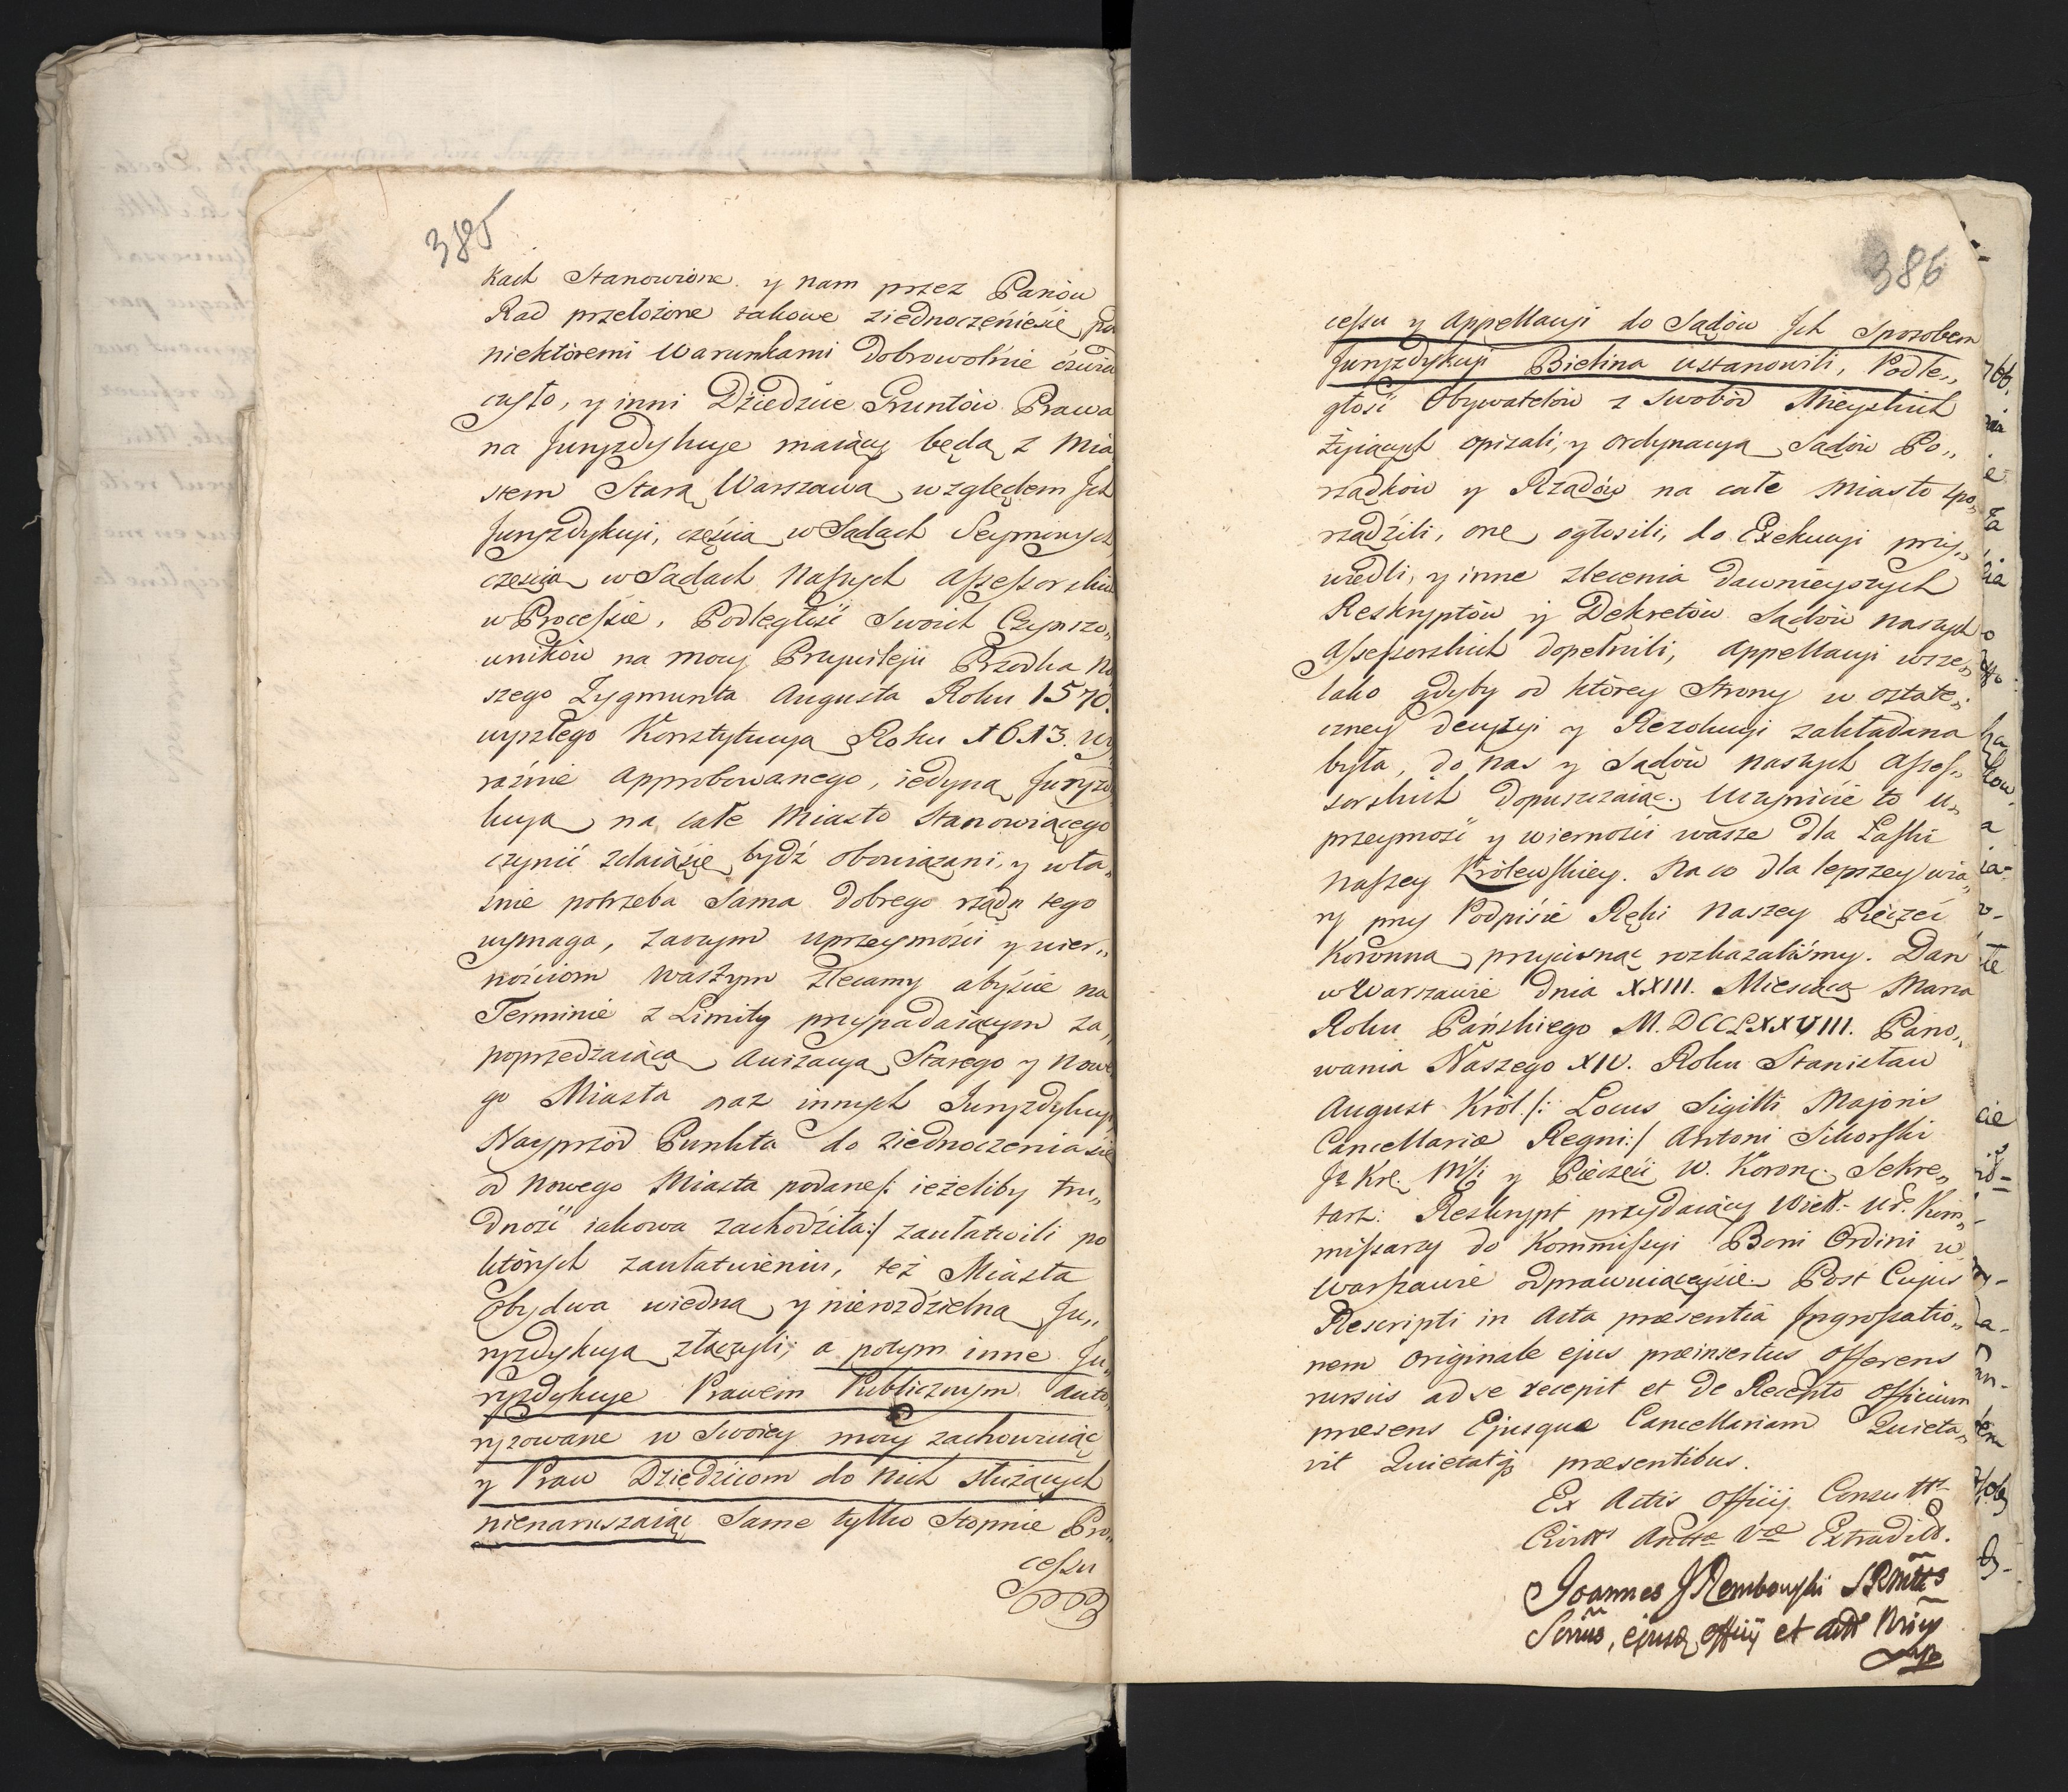 385
kach Stanowione y nam przez Panow
Rad przełożone takowe ziednoczenieśie
niektóremi Warunkami dobrowolnie
, y inni Dźiedźice Gruntów Prawa
na Juryzdykcye maiący będą z Mia
stem Starą Warszawą względem Jch
Juryzdykcyi, częścią w Sądach Seymowych
częścią w Sądach Naszych Assessorskich
w Processie, Podległość Swoich Czynszo„
wników na mocy Przywileju Przodka Na
szego Zygmunta Augusta Roku 1570.
wyszłego Konstytucyą Roku 1613. wy
raźnie Approbowanego, iedyną Juryzdy
kcyą na całe Miasto Stanowiącego
czynić zdaiąśię bydź obowiązani, y wła„
śnie potrzeba Sama dobrego rządu tego
wymaga, zaczym uprzeymości y wier„
nościom Waszym zlecamy abyście na
Terminie z Limity przypadaiącym za„
poprzedzaiącą Awizacyą Starego y Nowe
go Miasta oraz innych Juryzdykcyi
Nayprzód Punkta do ziednoczeniaśię
od Nowego Miasta podane/: ieżeliby tru„
dność iakowa zachodźiła:/ zaułatwili po
których zaułatwieniu, też Miasta
Obydwa wiedną y nierozdźielną Ju„
ryzdykcyą złączyli; a potym inne Ju„
ryzdykcye Prawem Publicznym auto„
ryzowane w Swoiey mocy zachowuiąc
y Praw Dźiedźicom do nich służących
nienaruszaiąc Same tylko Stopnie Pro„
cessu
386
cessu y Appellacyi do Sądów Jch Sposobem
Juryzdykcyi Bielina ustanowili, Podle„
głość Obywatelów z Swobód Mieyskich
żyiących opisali, y Ordynacyą Sądów Po„
rządków y Rządów na całe Miasto spo„
rządźili, one ogłosili, do Exekucyi przy„
wiedli, y inne zlecenia dawnieyszych
Reskryptów y Dekretów Sądów naszych
Assessorskich dopełnili, Appellacyi wsze„
lako gdyby od którey Strony w ostate„
czney decyzyi y Rezolucyi zakładana
była, do Nas y Sądów naszych Asses„
sorskich dopuszczaiąc. Uczynićie to u„
przeymość y wierności wasze dla Łaski
Naszey Królewskiey. Na co dla lepszey wia„
ry przy Podpiśie Ręki Naszey Pieczęć
Koronną przycisnąć rozkazaliśmy. Dan
w Warszawie dnia XXIII. Mieśiąca Marca
Roku Pańskiego M.DCCLXXVIII. Pano„
wania Naszego XIV. Roku Stanisław
August Król./: Locus Sigilli Majoris
Cancellariæ Regni:/ Antoni Sikorski
J: Kr: Mśi y Pieczęći W. Koronn: Sekre„
tarz: Reskrypt przydaiący Wiell: Ur. Kom„
missarzy do Kommissyi Boni Ordini w
Warszawie odprawuiąceyśię. Post Cujus
Rescripti in Acta præsentia Jngrossatio„
nem Originale ejus præinsertus Offerens
rursus ad se recepit et de Recepto Officium
præsens Ejusque Cancellariam Quieta„
vit Quietatq præsentibus.
Ex Actis Officij
Extradit.
Joannes
ejusq officij et